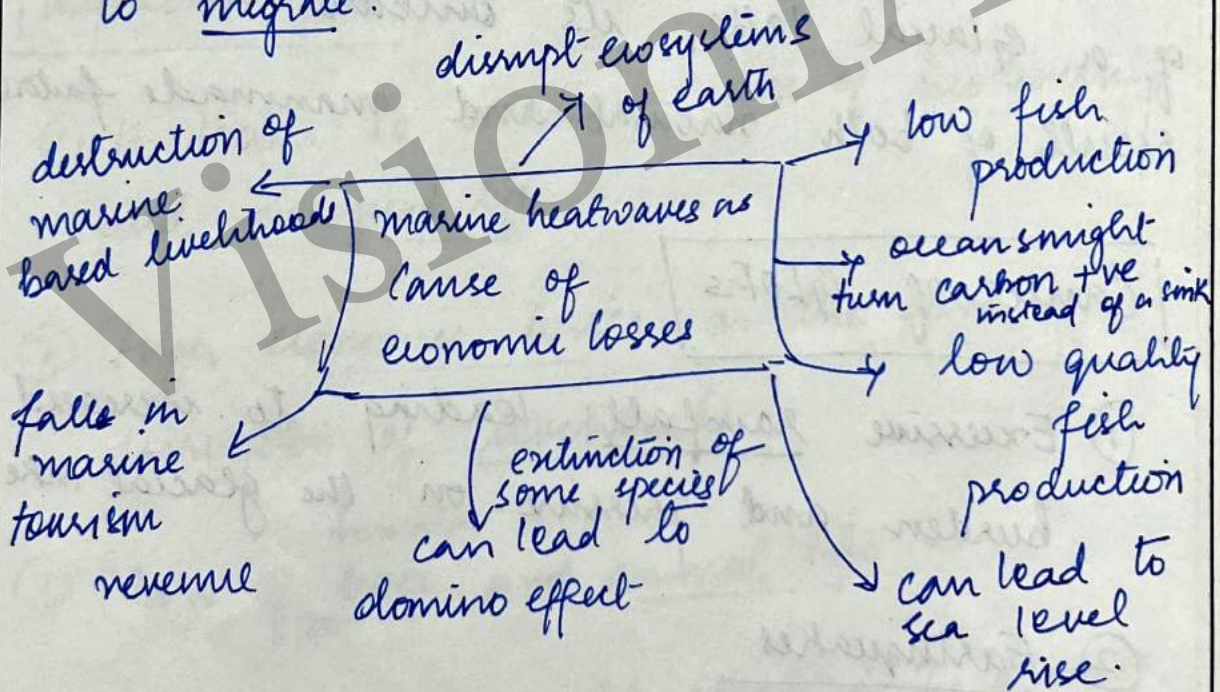 to migrate.
disrupt ecosystems
of earth
low fish
production
destruction of
marine
based livelihoods
marine heatwaves as
cause of
economic losses
oceans might
turn carbon +ve
instead of a sink
low quality
fish
production
falls in
marine
tourism
revenue
extinction of
some species
can lead to
domino effect
can lead to
sea level
rise.